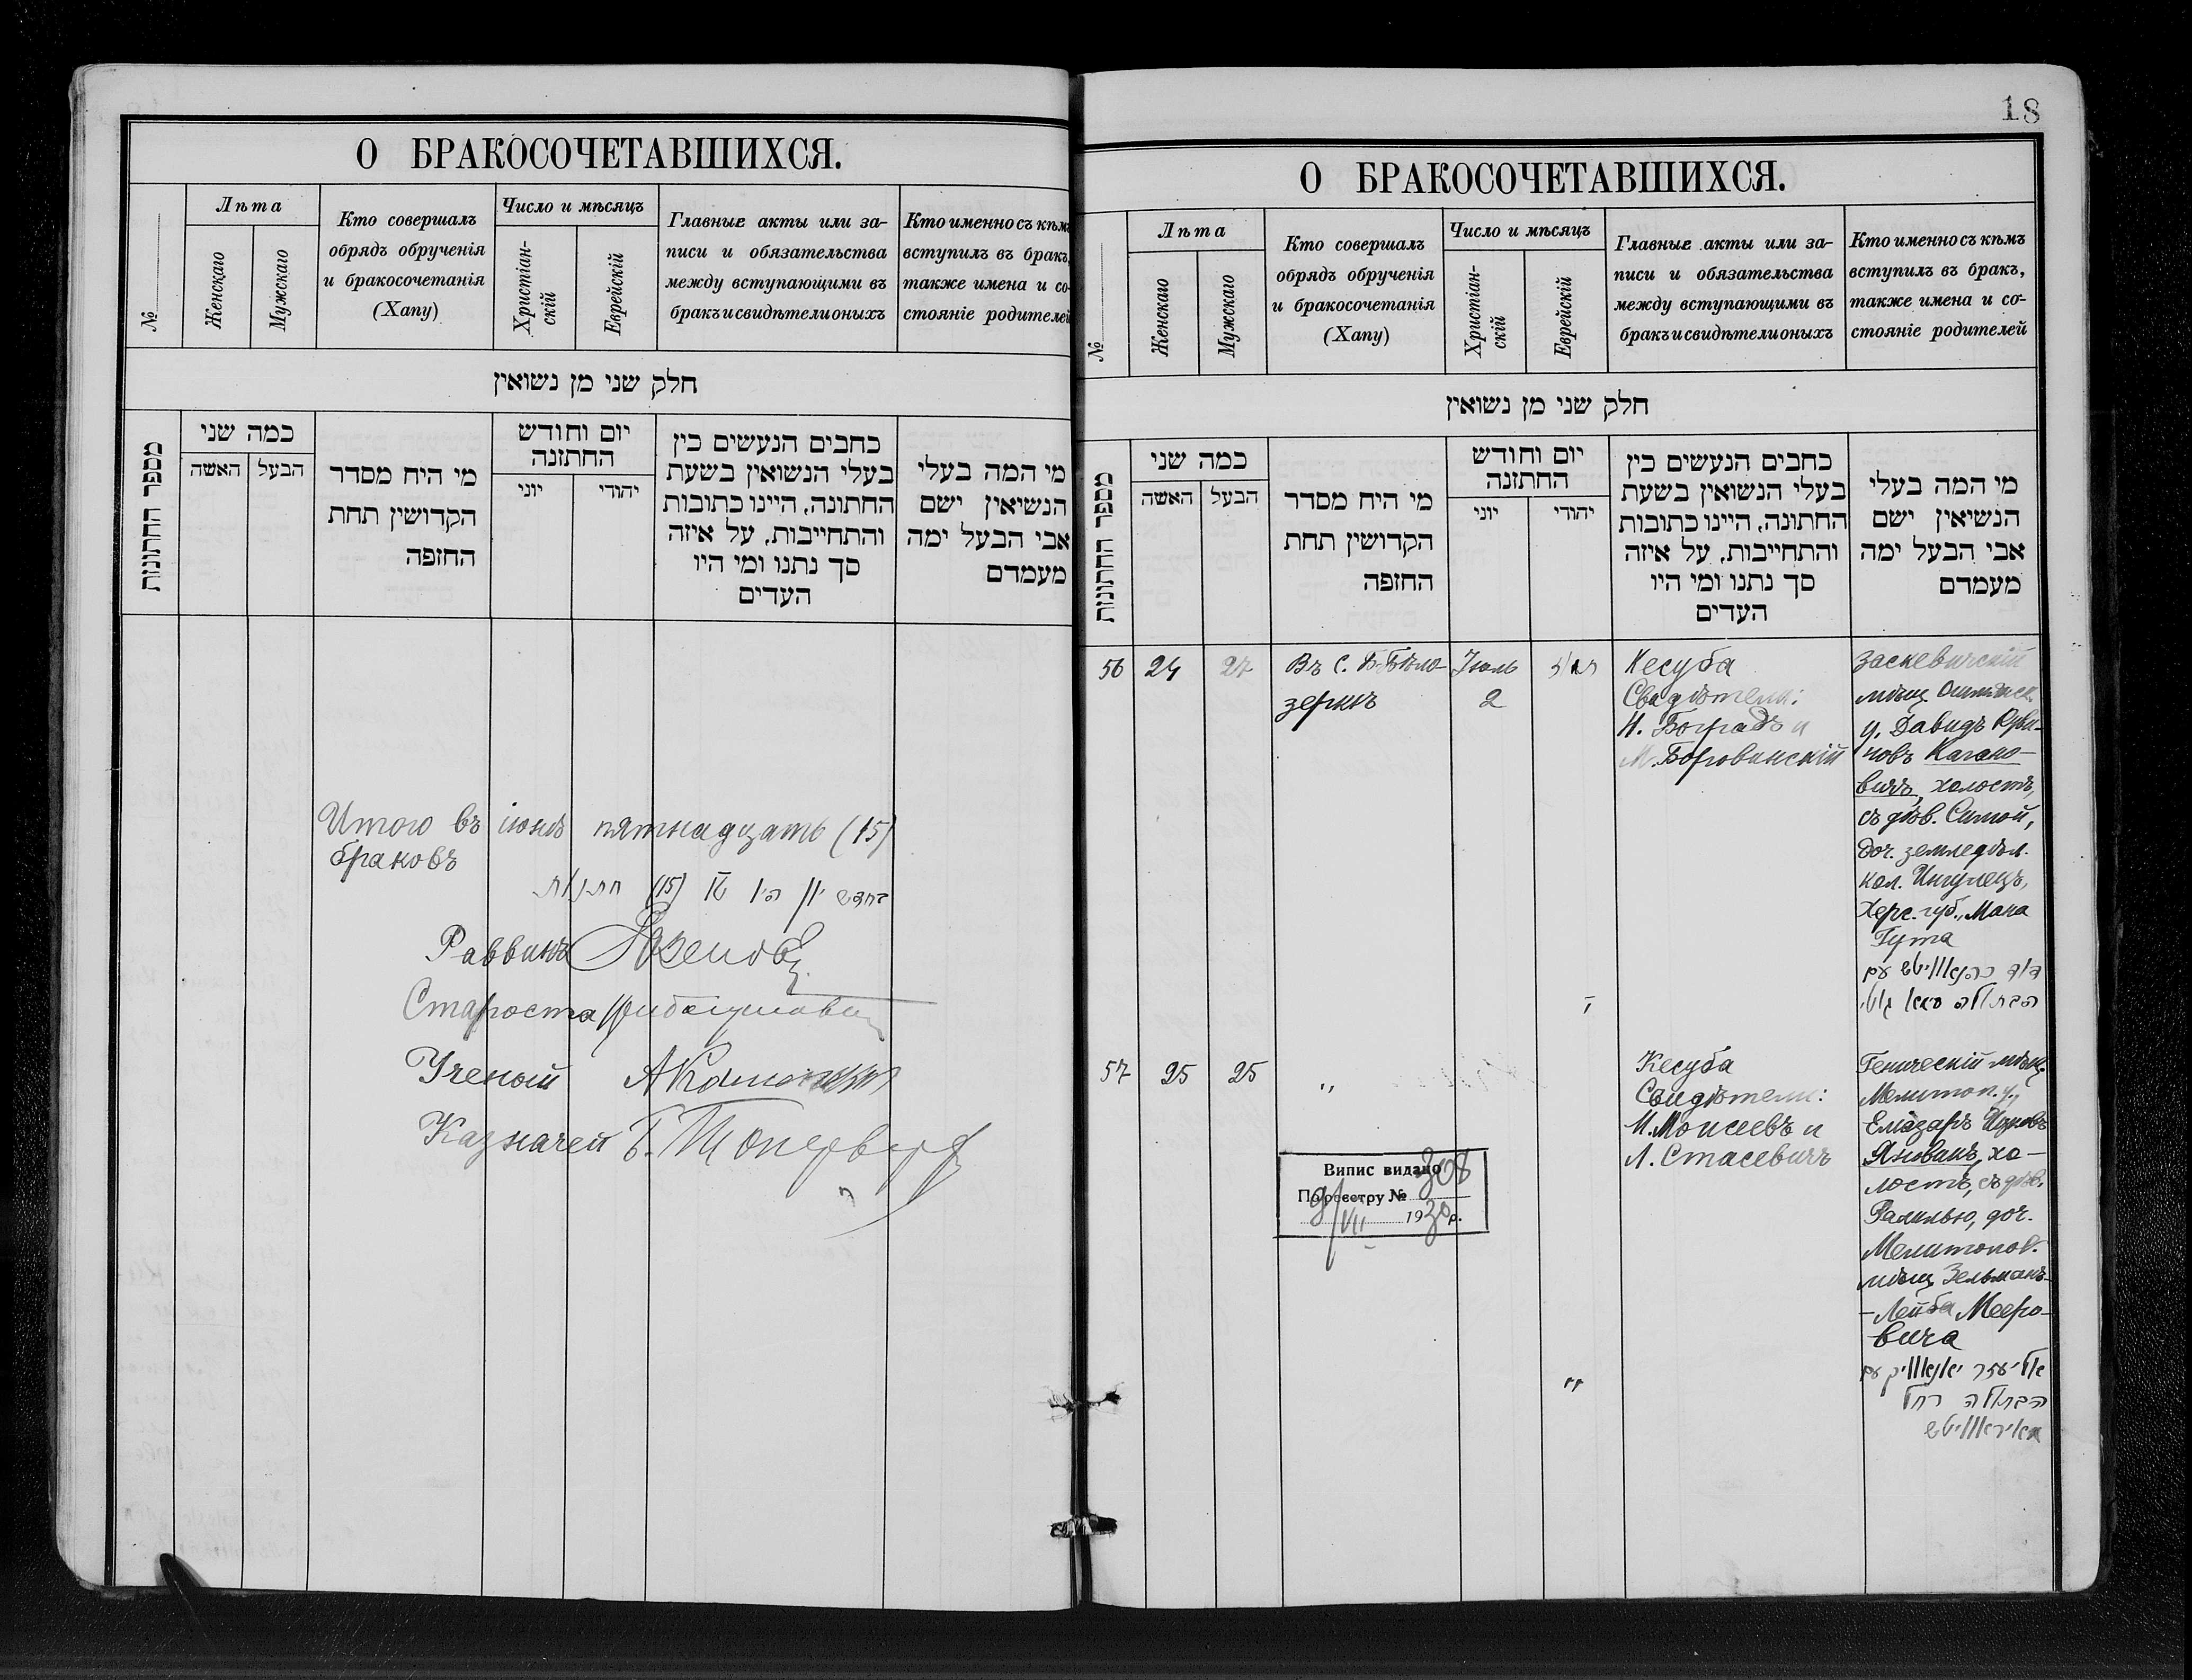 О БРАКОСОЧЕТАВШИХСЯ.
№
Лѣта
Женскаго
Мужскаго
Кто совершалъ
обрядъ обрученія
и бракосочетанія
(Хапу)
Число и мѣсяцъ
Христіан-
скій
Еврейскій
Главные акты или за-
писи и обязательства
между вступающими въ
бракъ и свидѣтели оныхъ
Кто именно съ кѣмъ
вступилъ въ бракъ,
также имена и со-
стояніе родителей
חלק שני מן נשואין
מספר החתונות
כמה שני
האשה
הבעל
מי היח מסדר
הקדושין תחת
החזפה
יום וחודש
החתזנה
יוני
יהודי
כחבים הנעשים כין
בעלי הנשואין בשעת
החתונה, היינו כתובות
והתחייבות, על איזה
סך נתנו ומי היו
העדים
מי המה בעלי
הנשיאין ישם
אבי הבעל ימה
מעמדם
Итого въ іюнѣ пятнадцать (15)
браковъ
Раввинъ
Староста
Ученый
Казначей
18
О БРАКОСОЧЕТАВШИХСЯ.
№
Лѣта
Женскаго
Мужскаго
Кто совершалъ
обрядъ обрученія
и бракосочетанія
(Хапу)
Число и мѣсяцъ
Христіан-
скій
Еврейскій
Главные акты или за-
писи и обязательства
между вступающими въ
бракъ и свидѣтели оныхъ
Кто именно съ кѣмъ
вступилъ въ бракъ,
также имена и со-
стояніе родителей
חלק שני מן נשואין
מספר החתונות
כמה שני
האשה
הבעל
מי היח מסדר
הקדושין תחת
החזפה
יום וחודש
החתזנה
יוני
יהודי
כחבים הנעשים כין
בעלי הנשואין בשעת
החתונה, היינו כתובות
והתחייבות, על איזה
סך נתנו ומי היו
העדים
מי המה בעלי
הנשיאין ישם
אבי הבעל ימה
מעמדם
56 24 27
Въ С. Б-Бѣло-
зеркѣ
Іюль
2
Кесуба
Свидѣтели:
И. Боградъ и
М. Боровинскій
Заскевичскій
мѣщ. Ошмянск.
у. Давидъ Руви-
новъ Кагано-
вичъ, холостъ,
съ дѣв. Симой,
доч. земледѣл.
кол. Ингулецъ,
Херс. губ., Мана
Гута
דוד כהנאוויטש עם
הבתולה סימא גוטי
57 25 25
"
Кесуба
Свидѣтели:
И. Моисеевъ и
Л. Стасевичъ
Геническій мѣщ.
Мелитоп. у.,
Елазаръ Ицковъ
Яновакъ, хо-
лостъ, съ дѣв.
Рахилью, доч.
Мелитопол.
мѣщ. Зельманъ-
-Лейба Мееро-
вича
"
הבתולה רחל
מאיראוויטש
Випис видано
По реєстру № 308
9/VII 1930 р.